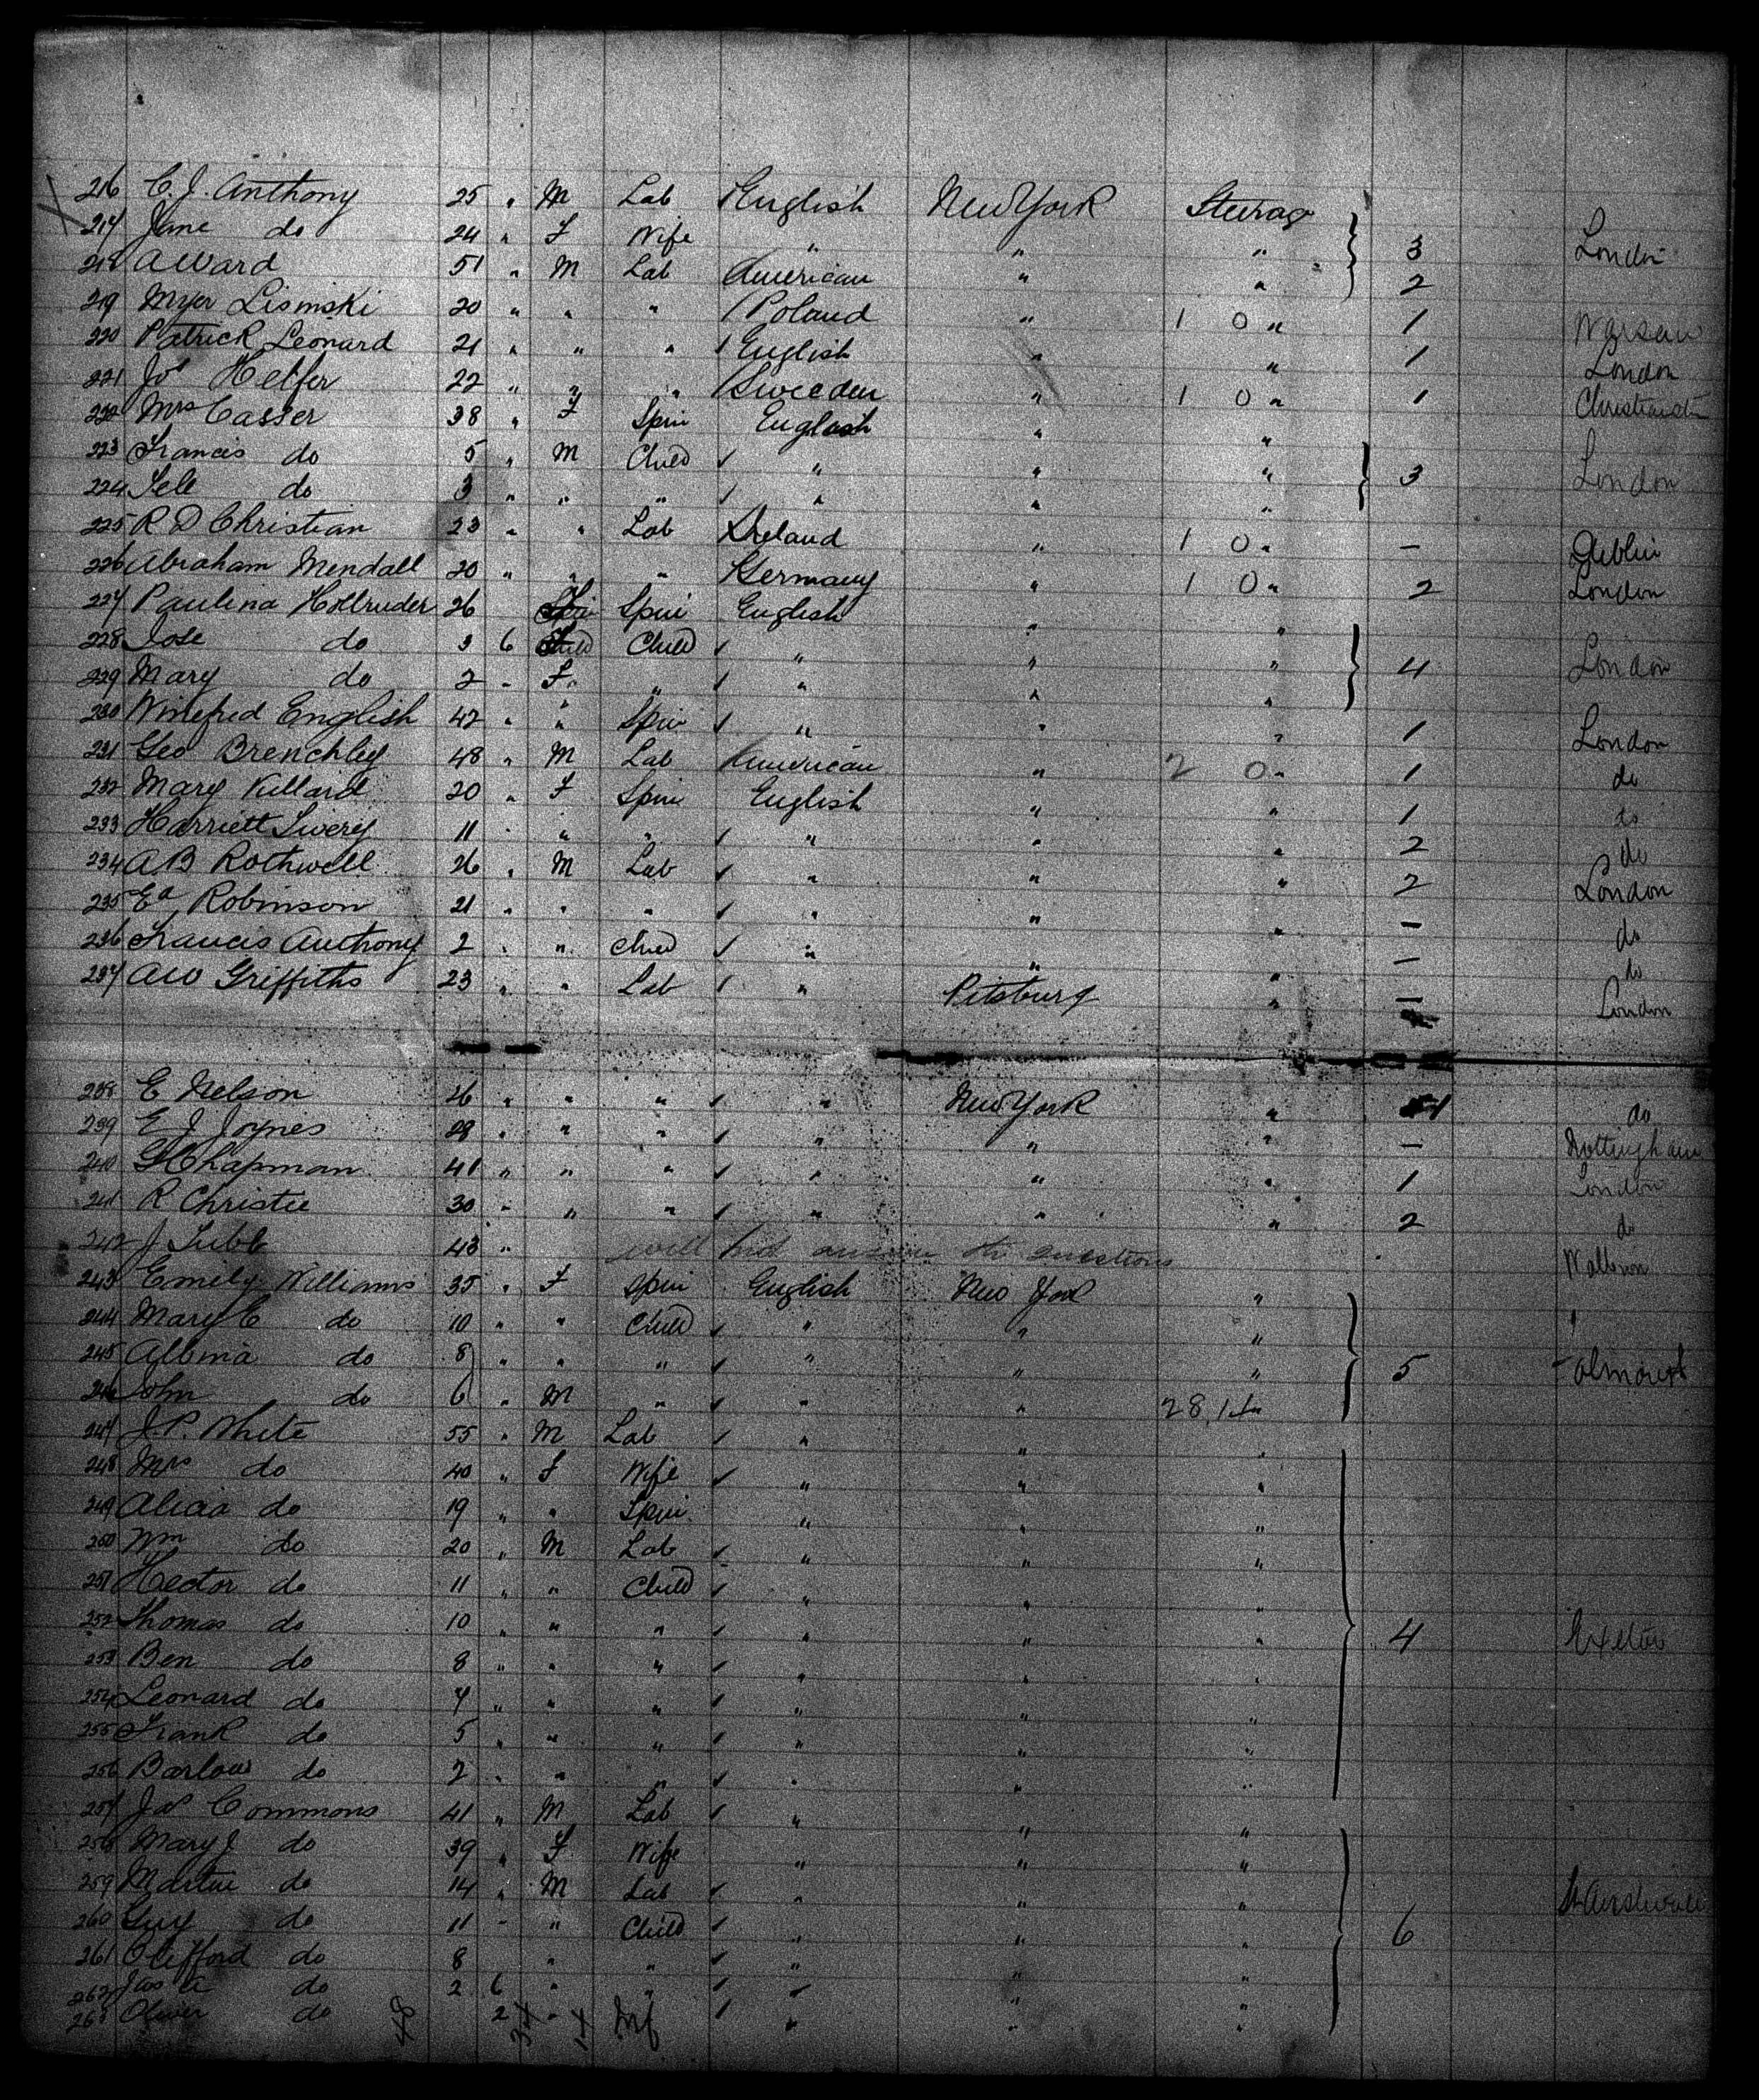 216 C. J. Anthony 25 " M Lab English New York Steerag
217 Jane do 24 " F Wife " " " 3 London
218 A Ward 51 " M Lab American " " 2
219 Myer Lisinski 20 " " " Poland " 1 0 " 1 Warsaw
220 Patrick Leonard 21 " " " English " " 1 London
221 Jos Helfer 22 " " " Sweeden " 1 0 " 1
222 Mrs Casser 38 " F Spin English " "
223 Francis do 5 " M Child " " " 3 London
224 do 3 " " " " " "
225 R D Christian 23 " " Lab Ireland " 1 0 " — Dublin
226 Abraham Mendall 20 " " " Germany " 1 0 " 2 London
227 Paulina Hollruder 26 Spin English " "
228 Jose do 3 6 Child " " " 4 London
229 Mary do 2 - F " " " "
230 Winefred English 42 " " Spin " " " 1 London
231 Geo Brenchley 48 " M Lab American " 2 0 " 1 do
232 Mary Villard 20 " F Spin English " " 1 do
233 Harriett 11 " " " " " " 2 do
234 A B Rothwell 26 " M Lab " " " 2 London
235 Ed Robinson 21 " " " " " " — do
236 Francis Anthony 2 " " Child " " " — do
237 A W Griffiths 23 " " Lab " Pitsburg " — London
238 E Nelson 26 " " " " New York " 1 do
239 E J Joynes 28 " " " " " " — Nottingham
240 G Chapman 41 " " " " " " 1 London
241 R Christie 30 - " " " " " 2 do
242 J Tubb 43 " will not answer the questions
243 Emily Williams 35 " F Spin English New York "
244 Mary E do 10 " " Child " " "
245 Albina do 8 " " " " " " 5
246 John do 6 " M " " " 28
247 J. P. White 55 " M Lab " " "
248 Mrs do 40 " F Wife " " "
249 Alicia do 19 " " Spin " " "
250 Wm do 20 " M Lab " " "
251 Hector do 11 " " Child " " "
252 Thomas do 10 " " " " " " 4 Exeter
253 Ben do 8 " " " " " "
254 Leonard do 7 " " " " " "
255 Frank do 5 " " " " " "
256 Barlow do 2 " " " " " "
257 Jas Commons 41 " M Lab " " "
258 Mary J do 39 " F Wife " " "
259 Martin do 14 " M Lab " " "
260 Guy do 11 - " Child " " " 6
261 Clifford do 8 " " " " "
262 Jas A do 2 6 " " " " "
263 Oliver do 2 " " " "
48 34 14